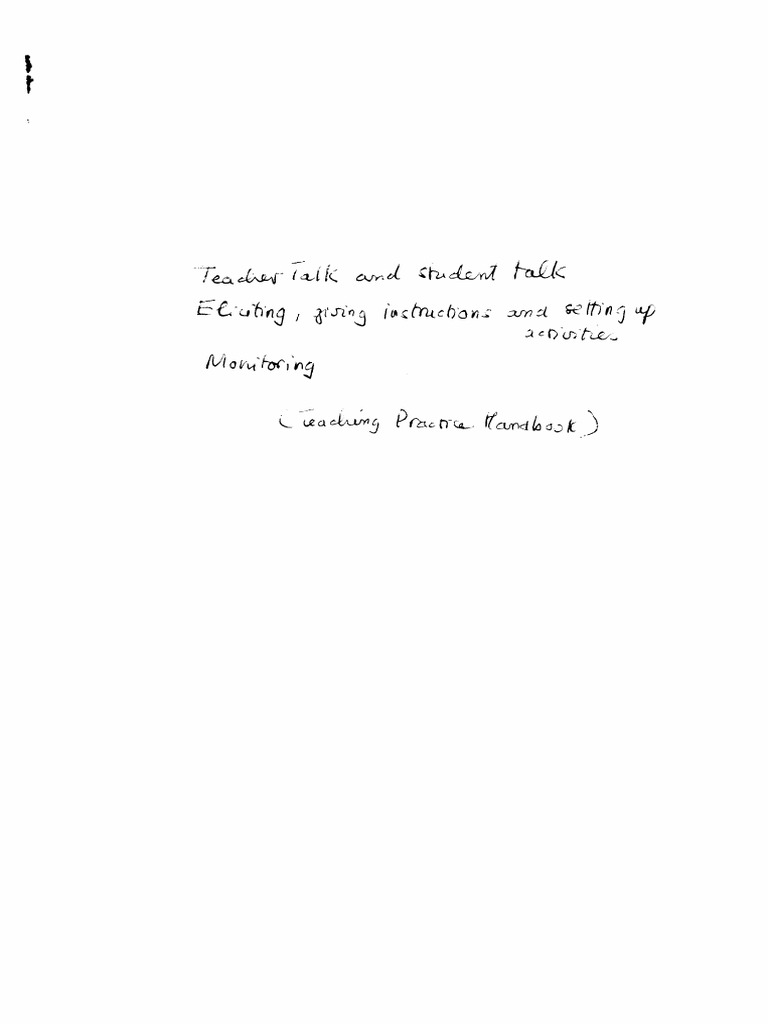 Teacher Talk and student talk
Eliciting, giving instructions and setting up
activities
Monitoring
(Teaching Practice Handbook)